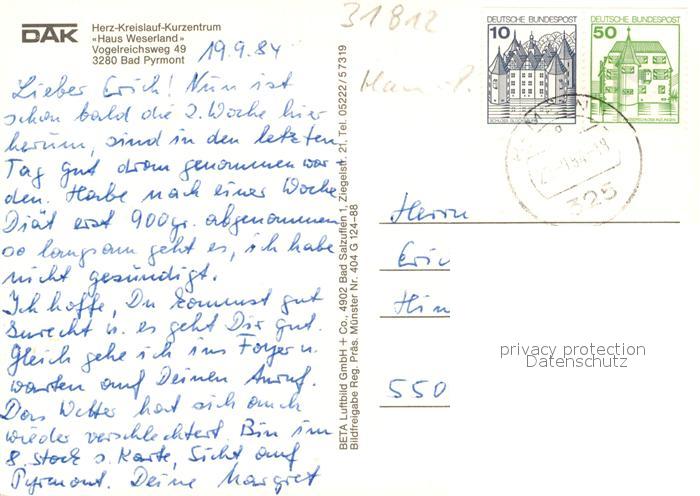 DAK
Herz-Kreislauf-Kurzentrum
«Haus Weserland»
Vogelreichsweg 49
3280 Bad Pyrmont
19.9.84
Lieber Erich! Nun ist
schon bald die 2. Woche hier
herum, sind in den letzten
Tag gut dran genommen wor
den. Habe nach einer Woche
Diät erst 900gr. abgenommen
so langsam geht es, ich habe
nicht gesündigt.
Ich hoffe, Du kommst gut
zurecht u. es geht Dir gut.
Gleich gehe ich ins Foyer u.
warten auf Deinen Anruf.
Das Wetter hat sich auch
wieder verschlechtert. Bin im
8. Stock s. Karte, Sicht auf
Pyrmont. Deine Margret
BETA Luftbild GmbH + Co., 4902 Bad Salzuflen 1, Ziegelstr. 21, Tel. 05222/57319
Bildfreigabe Reg. Präs. Münster Nr. 404 G 124–88
31812
DEUTSCHE BUNDESPOST
10
DEUTSCHE BUNDESPOST
50
325
Herrn
Eric
Hin
550
privacy protection
Datenschutz